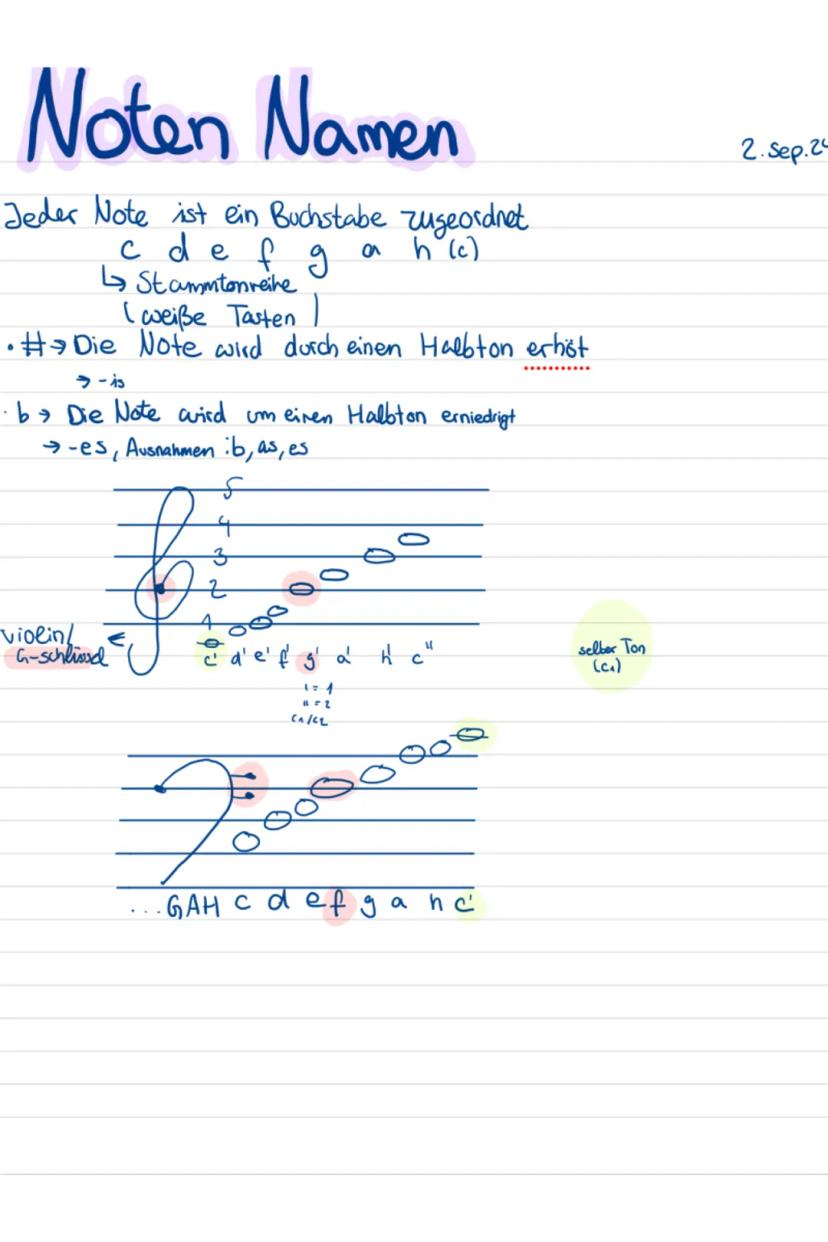 Noten Namen
2. Sep. 24
Jeder Note ist ein Buchstabe zugeordnet
c d e f g a h (c)
↳ Stammtonreihe
( weiße Tasten )
• # → Die Note wird durch einen Halbton erhöt
→ -is
· b → Die Note wird um einen Halbton erniedrigt
→ -es, Ausnahmen : b, as, es
5
4
3
2
1
Violin/
G-schlüssel
c' d' e' f' g' a' h' c''
selber Ton
(c1)
' = 1
'' = 2
c1/c2
...GAH c d e f g a h c'